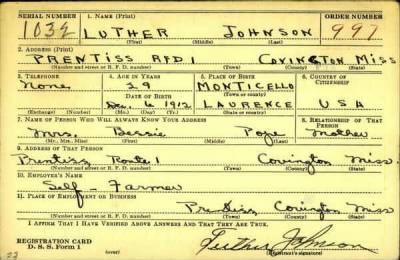 SERIAL NUMBER 1. NAME (Print) ORDER NUMBER
1032 LUTHER JOHNSON 997
(First) (Middle) (Last)
2. ADDRESS (Print)
PRENTISS RFD 1 COVINGTON MISS
(Number and street or R. F. D. number) (Town) (County) (State)
3. TELEPHONE 4. AGE IN YEARS 5. PLACE OF BIRTH 6. COUNTRY OF CITIZENSHIP
None 29 MONTICELLO
DATE OF BIRTH (Town or county)
Dec. 6 1912 LAURENCE USA
(Exchange) (Number) (Mo.) (Day) (Yr.) (State or country)
7. NAME OF PERSON WHO WILL ALWAYS KNOW YOUR ADDRESS 8. RELATIONSHIP OF THAT PERSON
Mrs. Bessie Pope Mother
(Mr., Mrs., Miss) (First) (Middle) (Last)
9. ADDRESS OF THAT PERSON
Prentiss Route 1 Covington Miss.
(Number and street or R. F. D. number) (Town) (County) (State)
10. EMPLOYER'S NAME
Self - Farmer
11. PLACE OF EMPLOYMENT OR BUSINESS
Prentiss Covington Miss
(Number and street or R. F. D. number) (Town) (County) (State)
I AFFIRM THAT I HAVE VERIFIED ABOVE ANSWERS AND THAT THEY ARE TRUE.
REGISTRATION CARD
D. S. S. Form 1 (over) Luther Johnson
(Registrant's signature)